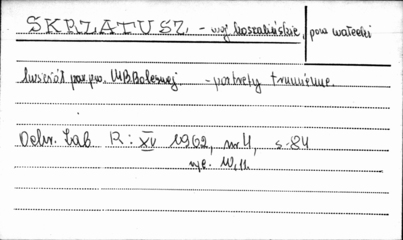 SKRZATUSZ - woj. koszalińskie, pow wałecki
kościół par. p.w. M.B. Bolesnej - portrety trumienne.
Ochr. Zab R: XV 1962, nr 4, s. 84
ryc. 10, 11.